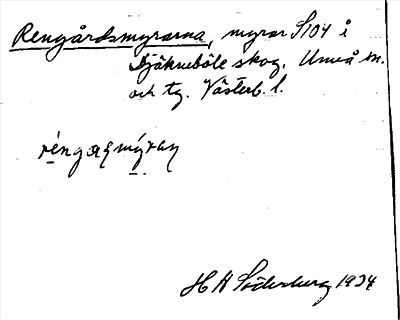 Rengårdsmyrarna, myrar S104 i
Djäkneböle skog. Umeå sn.
och tg. Västerb. l.
H A Söderberg 1934